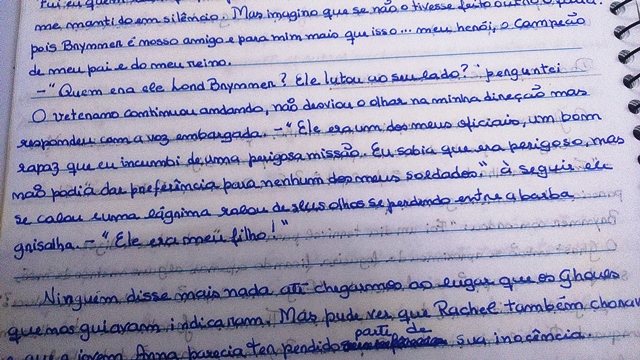 Fui eu quem
me mantido em silêncio. Mas imagino que se não o tivesse feito outro o
pois Baymmer é nosso amigo e para mim mais que isso... meu herói, o campeão
de meu pai e do meu reino.
- "Quem era ele Lord Baymmer? Ele lutou ao seu lado?" perguntei
O veterano continuou andando, não desviou o olhar na minha direção mas
respondeu com a voz embargada. - "Ele era um dos meus oficiais, um bom
rapaz que eu incumbi de uma perigosa missão. Eu sabia que era perigoso, mas
não podia dar preferência para nenhum dos meus soldados." à seguir ele
se calou e uma lágrima rolou de seus olhos se perdendo entre a barba
grisalha. - "Ele era meu filho!"
Ninguém disse mais nada até chegarmos ao lugar que os Ghouls
que nos guiavam indicaram. Mas pude ver que Rachel também chorava
e que a jovem Anna parecia ter perdido parte de sua inocência.